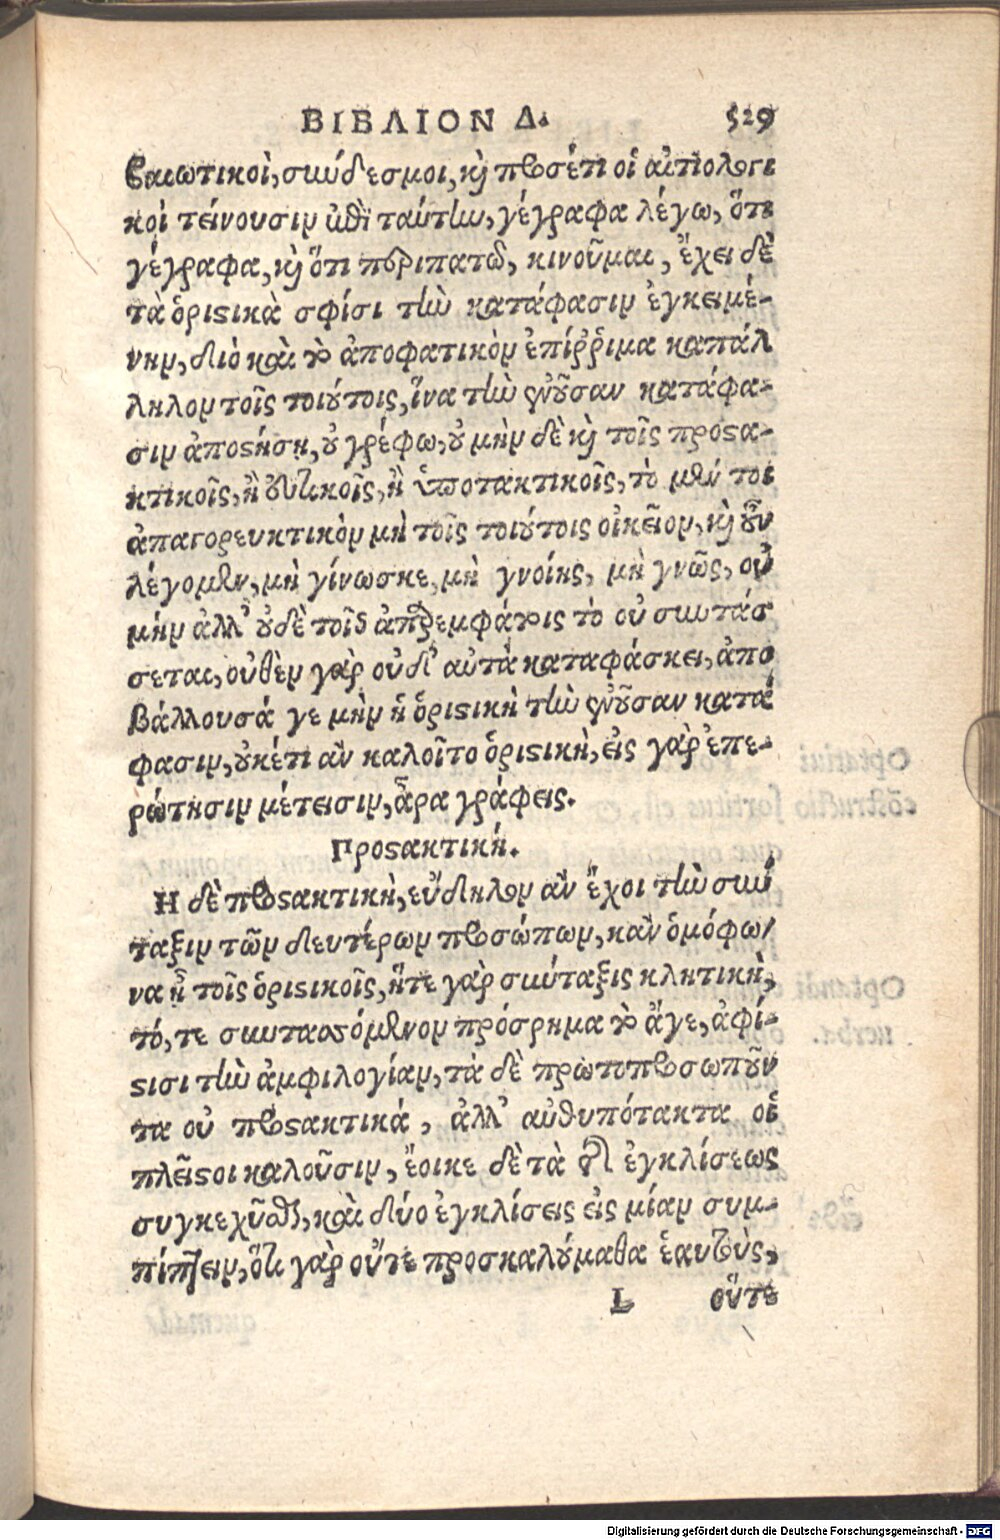 ΒΙΒΛΙΟΝ Δ. 529
βαιωτικοὶ, σύνδεσμοι, καὶ προσέτι οἱ αἰτιολογι
κοὶ τείνουσιν ἐπὶ ταύτην, γέγραφα λέγω, ὅτι
γέγραφα, καὶ ὅτι περιπατῶ, κινοῦμαι, ἔχει δὲ
τὰ ὁριστικὰ σφίσι τὴν κατάφασιν ἐγκειμέ-
νην, διὸ καὶ τὸ ἀποφατικὸν ἐπίῤῥιμα καπάλ
ληλον τοῖς τοιούτοις, ἵνα τὴν οὖσαν κατάφα-
σιν ἀποστήσῃ, οὐ γρέφω, οὐ μὴν δὲ καὶ τοῖς προστα-
κτικοῖς, ἢ εὐκτικοῖς, ἢ ὑποτακτικοῖς, τὸ μέν τοι
ἀπαγορευκτικὸν μὴ τοῖς τοιούτοις οἰκεῖον, καὶ οὖν
λέγομεν, μὴ γίνωσκε, μὴ γνοίης, μὴ γνῶς, οὐ
μὴν ἀλλ' οὐδὲ τοῖς ἀπαρεμφάτοις τὸ οὐ συντάσ
σεται, οὐθὲν γὰρ οὐδ' αὐτὰ καταφάσκει, ἀπο
βάλλουσά γε μὴν ἡ ὁριστικὴ τὴν οὖσαν κατά
φασιν, οὐκέτι ἂν καλοῖτο ὁριστικὴ, εἰς γὰρ ἐπε-
ρώτησιν μέτεισιν, ἆρα γράφεις.
Προστακτική.
Η δὲ προστακτικὴ, εὔδηλον ἂν ἔχοι τὴν σύν
ταξιν τῶν δευτέρων προσώπων, κἂν ὁμόφω/
να ᾖ τοῖς ὁριστικοῖς, ἥτε γὰρ σύνταξις κλητικὴ,
τό, τε συντασσόμενον πρόσρημα τὸ ἄγε, ἀφί-
στισι τὴν ἀμφιλογίαν, τὰ δὲ πρωτοπροσωποῦν
τα οὐ προστακτικά, ἀλλ' αὐθυπότακτα οἱ
πλεῖστοι καλοῦσιν, ἔοικε δὲ τὰ τῆς ἐγκλίσεως
συγκεχῦσθαι, καὶ δύο ἐγκλίσεις εἰς μίαν συμ-
πίπτειν, ὅτι γὰρ οὔτε προσκαλούμαθα ἑαυτοὺς,
L οὔτε
Digitalisierung gefördert durch die Deutsche Forschungsgemeinschaft - DFG